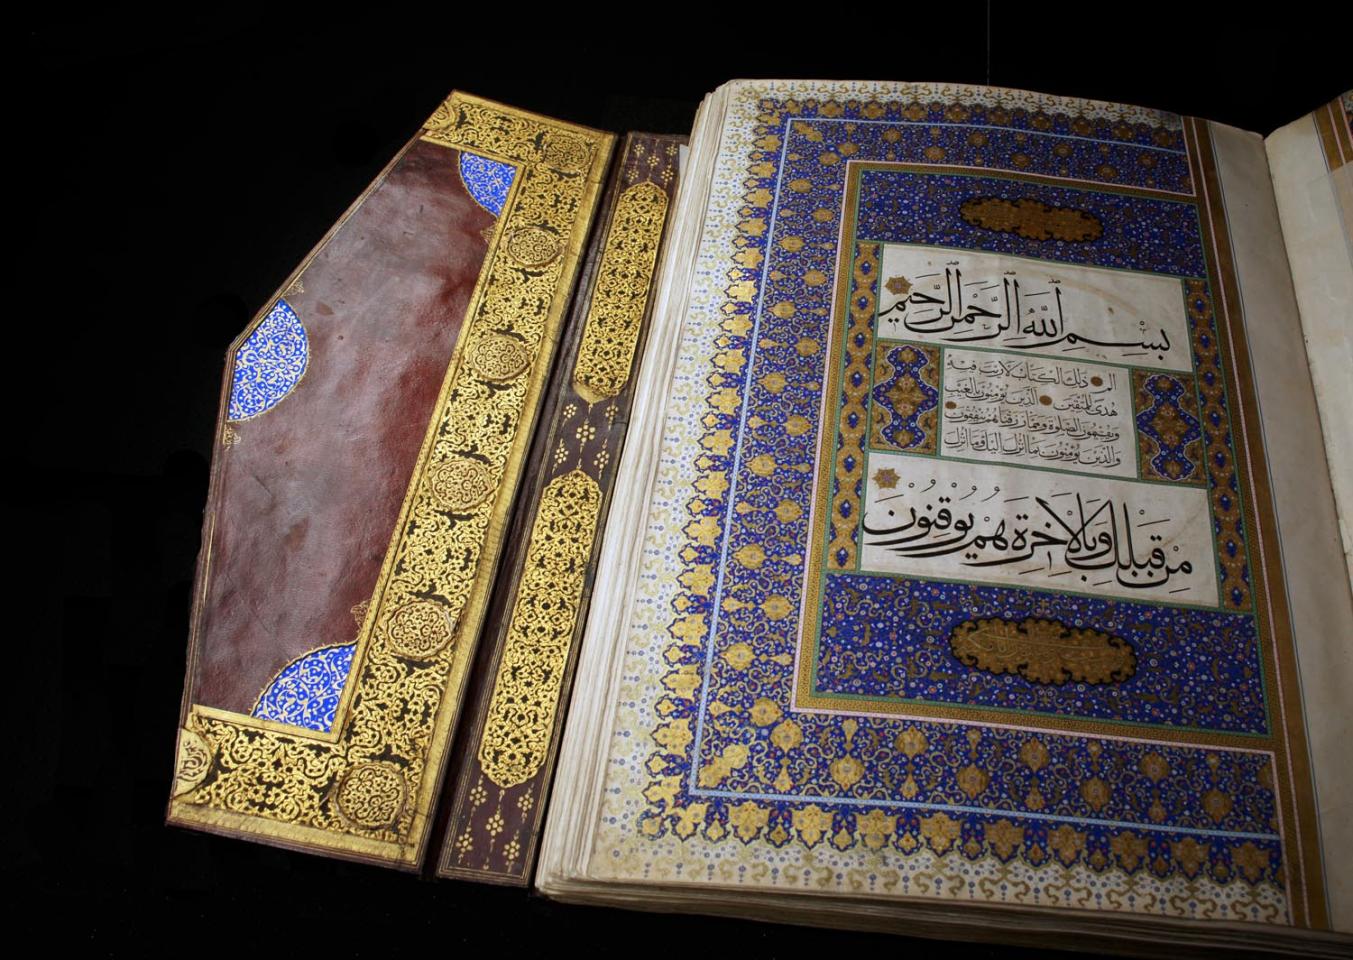 بِسْمِ اللَّهِ الرَّحْمَنِ الرَّحِيمِ
الم ذَلِكَ الْكِتَابُ لَا رَيْبَ فِيهِ
هُدًى لِلْمُتَّقِينَ الَّذِينَ يُؤْمِنُونَ بِالْغَيْبِ
وَيُقِيمُونَ الصَّلٰوةَ وَمِمَّا رَزَقْنَاهُمْ يُنْفِقُونَ
وَالَّذِينَ يُؤْمِنُونَ بِمَا أُنْزِلَ إِلَيْكَ وَمَا أُنْزِلَ
مِنْ قَبْلِكَ وَبِالْآخِرَةِ هُمْ يُوقِنُونَ